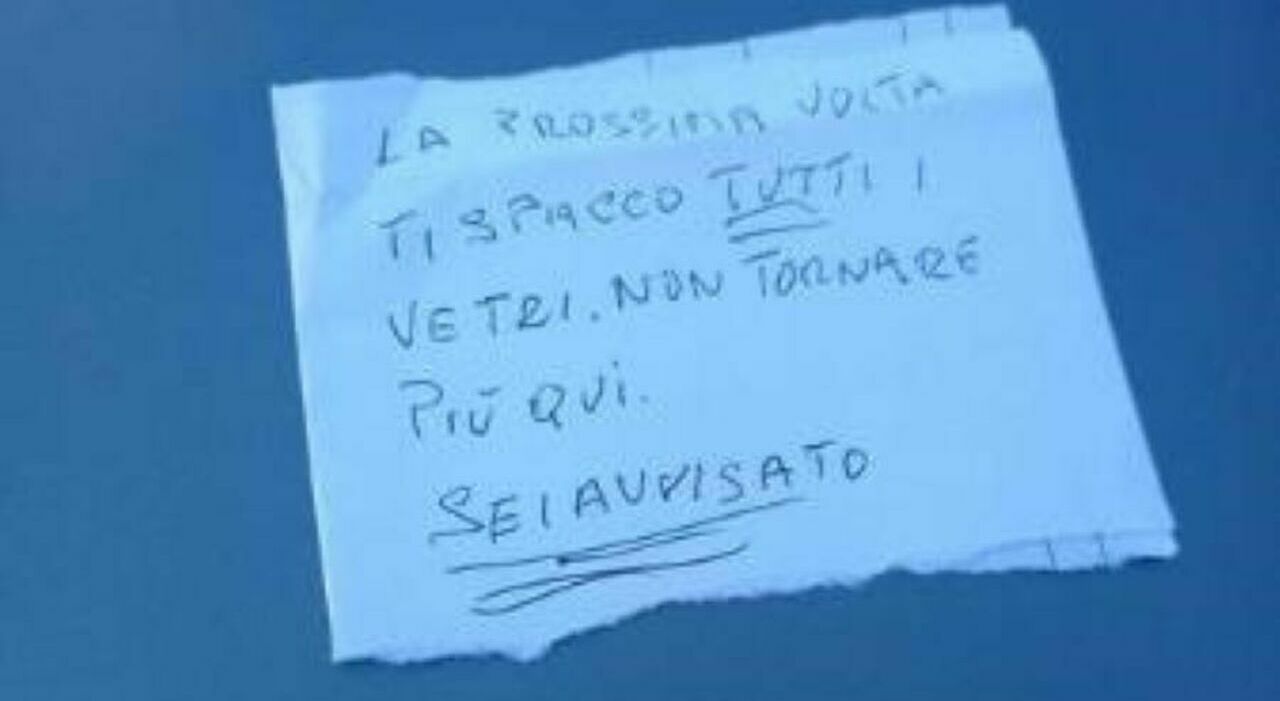 LA PROSSIMA VOLTA
TI SPACCO TUTTI I
VETRI. NON TORNARE
PIÙ QUI.
SEI AVVISATO